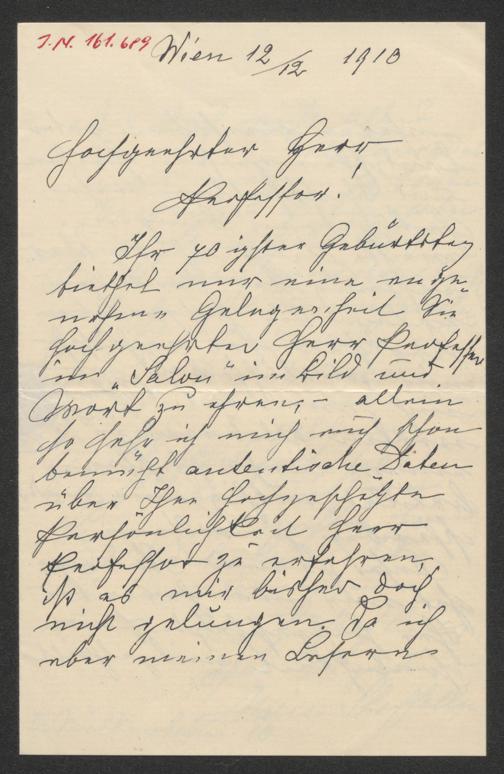 J.N. 161.689
Wien 12/12 1910
Hochgeehrter Herr
Professor!
Ihr 70 igster Geburtstag
biethet mir eine ange-
nehme Gelegenheit Sie
hochgeehrter Herr Professor
im „Salon" in Bild und
Wort zu ehren, – allein
so sehr ich mich auch schon
bemüht autentische Daten
über Ihre hochgeschätzte
Persönlichkeit Herr
Professor zu erfahren,
ist es mir bisher doch
nicht gelungen. Da ich
aber meinen Lesern